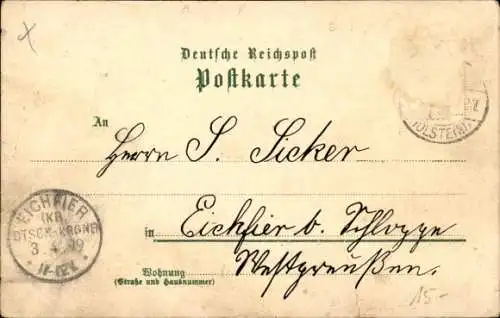 Deutsche Reichspost
Postkarte
An
Herrn S. Sicker
in Eichfier b. Schloppe
Westpreußen.
Wohnung
(Straße und Hausnummer)
EICHFIER
(KR.
DTSCH-KRONE
3 4 99
11-12V.
(HOLSTEIN)
15-